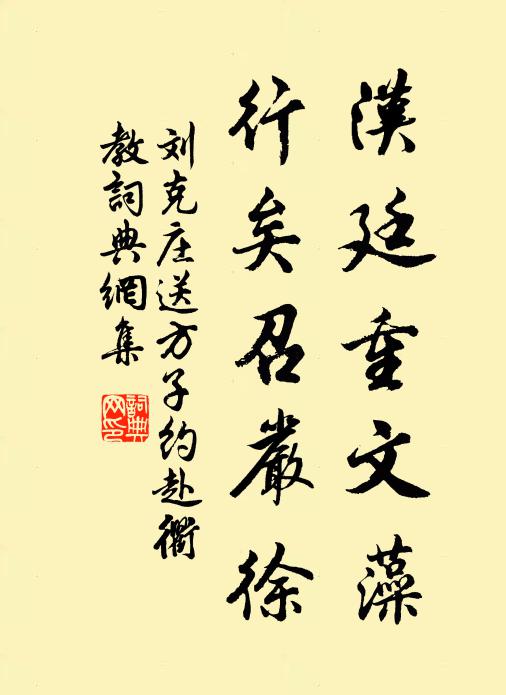 漢廷重文藻
行矣召嚴徐
刘克庄送方子约赴衢
教詞典網集
詞典网印